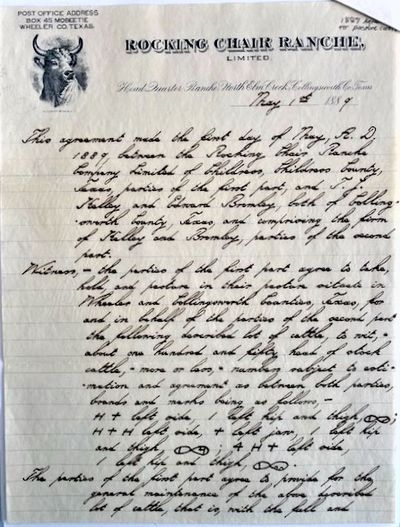 POST OFFICE ADDRESS
BOX 45 MOBEETIE
WHEELER CO. TEXAS.
1889
for pasture
ROCKING CHAIR RANCHE,
LIMITED.
Head Quarter Ranche North Elm Creek, Collingsworth Co. Texas
May 1st 1889
This agreement made the first day of May, A. D.
1889, between the Rocking Chair Ranche
Company Limited of Childress, Childress County,
Texas, parties of the first part, and
Kelley and Edward Bromley, both of Colling-
-sworth County, Texas, and comprising the firm
of Kelley and Bromley, parties of the second
part.
Witness, - the parties of the first part agree to take,
hold and pasture in their pasture situate in
Wheeler and Collingsworth Counties, Texas, for
and in behalf of the parties of the second part
the following described lot of cattle, to wit, -
about one hundred and fifty head of stock
cattle, - more or less - number subject to esti-
-mation and agreement as between both parties,
brands and marks being as follows, -
H + left side, 1 left hip and thigh
H + H left side, + left jaw 1 left hip
and thigh ; 4 H + left side,
1 left hip and thigh,
The parties of the first part agree to provide for the
general maintenance of the above described
lot of cattle, that is, with the full and